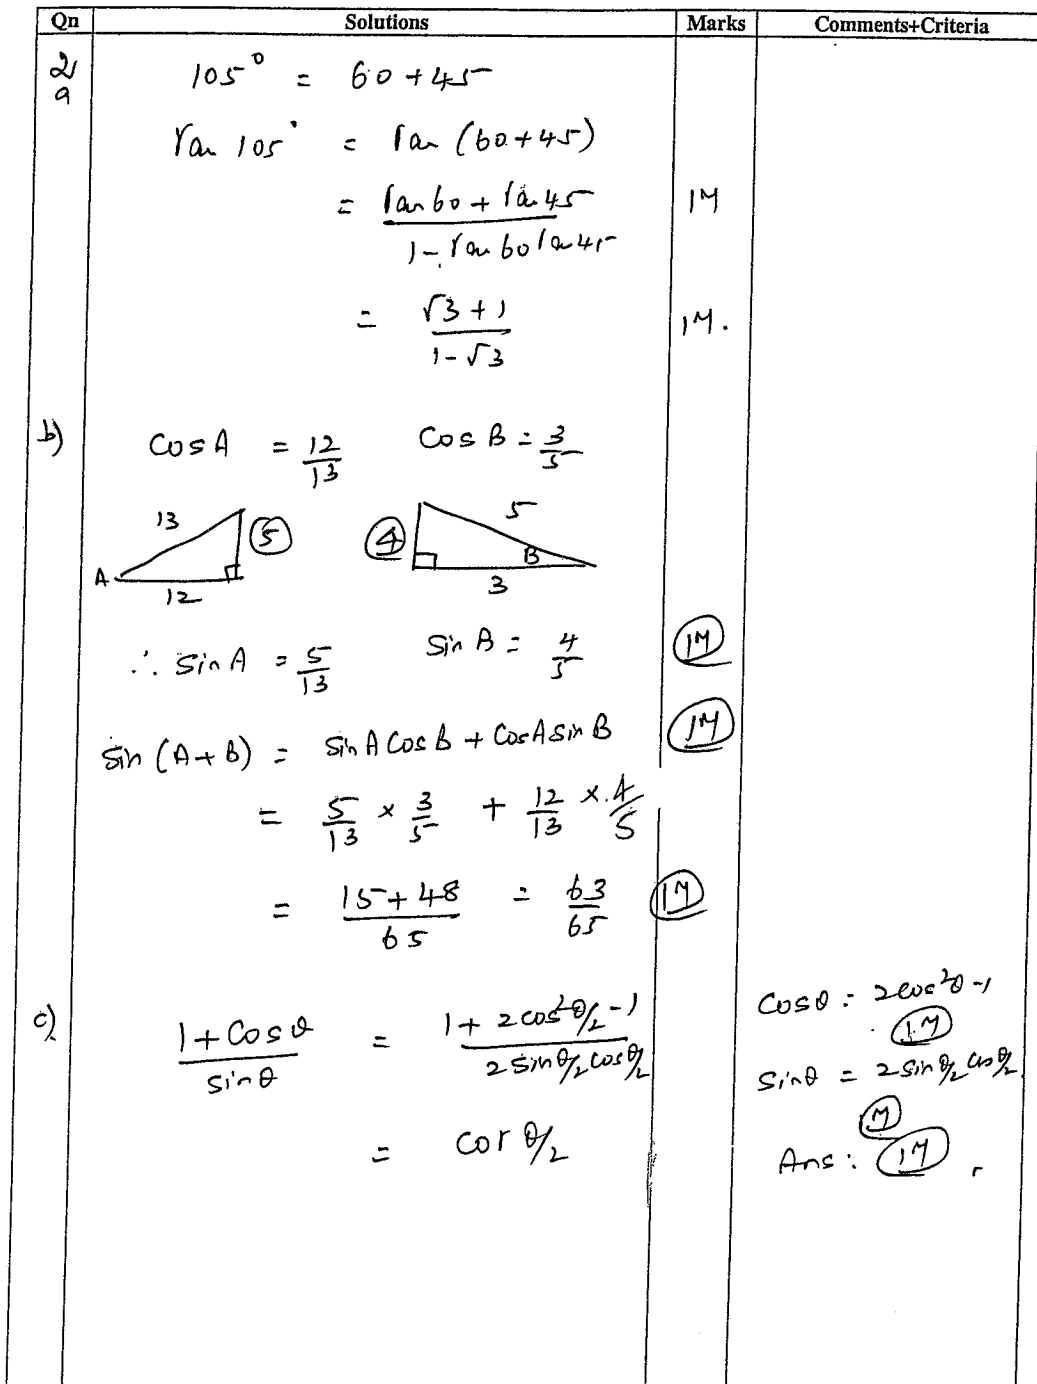 Qn Solutions Marks Comments+Criteria
2/a 105° = 60 + 45
Tan 105° = Tan (60+45)
= (Tan 60 + Tan 45) / (1 - Tan 60 Tan 45) 1M
= (√3 + 1) / (1 - √3) 1M.
b) Cos A = 12/13 Cos B = 3/5
13 5 4 5
A 12 B 3
∴ Sin A = 5/13 Sin B = 4/5 1M
Sin (A+B) = Sin A Cos B + Cos A Sin B 1M
= 5/13 × 3/5 + 12/13 × 4/5
= (15 + 48)/65 = 63/65 1M
c) (1 + Cos θ)/sin θ = (1 + 2cos²θ/2 - 1)/(2 sin θ/2 cos θ/2) Cos θ = 2cos²θ - 1
1M
Sin θ = 2 Sin θ/2 Cos θ/2
M
= Cot θ/2 Ans: 1M